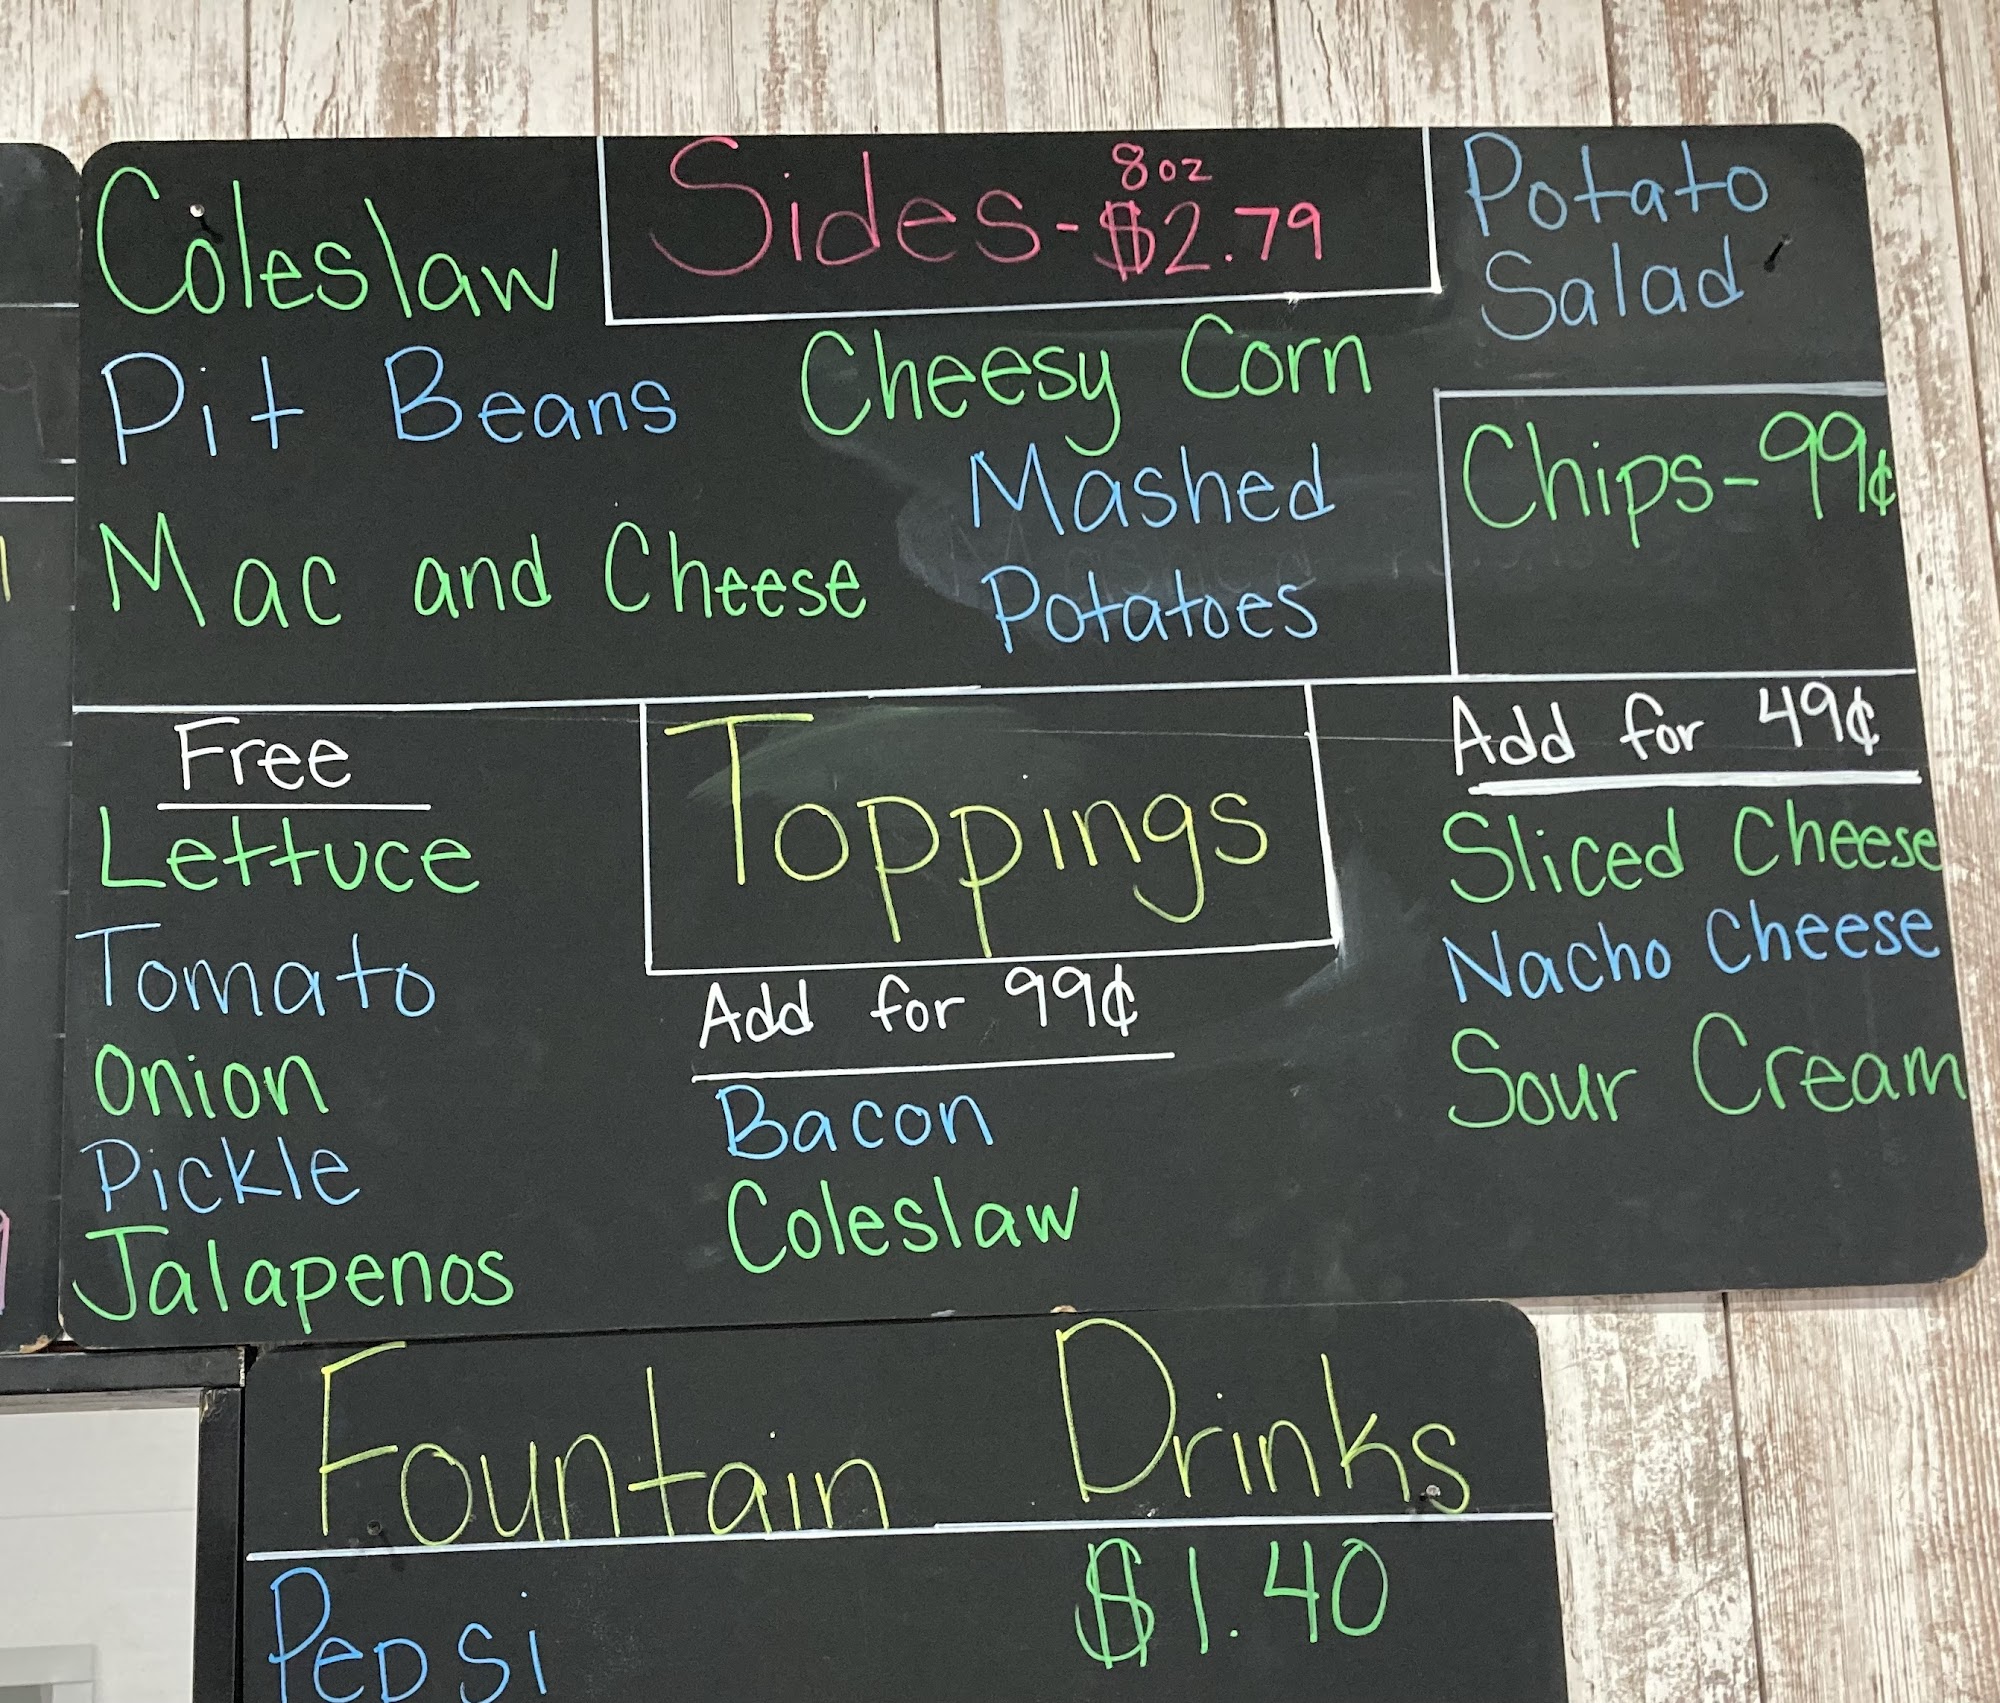 Coleslaw
Sides - 8oz $2.79
Potato
Salad
Pit Beans
Cheesy Corn
Mashed
Potatoes
Mac and Cheese
Chips - 99¢
Free
Lettuce
Tomato
Onion
Pickle
Jalapenos
Toppings
Add for 99¢
Bacon
Coleslaw
Add for 49¢
Sliced Cheese
Nacho Cheese
Sour Cream
Fountain Drinks
Pepsi $1.40